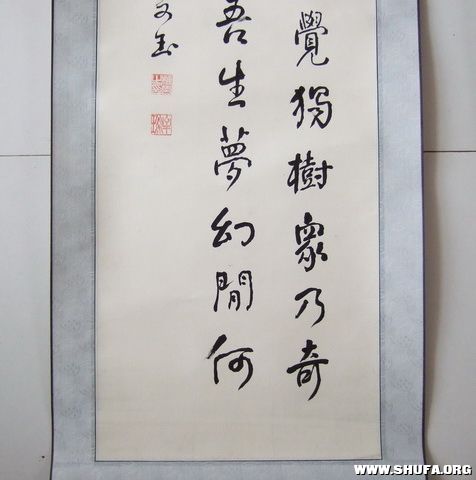 覺獨樹眾乃奇
吾生夢幻間何
WWW.SHUFA.ORG